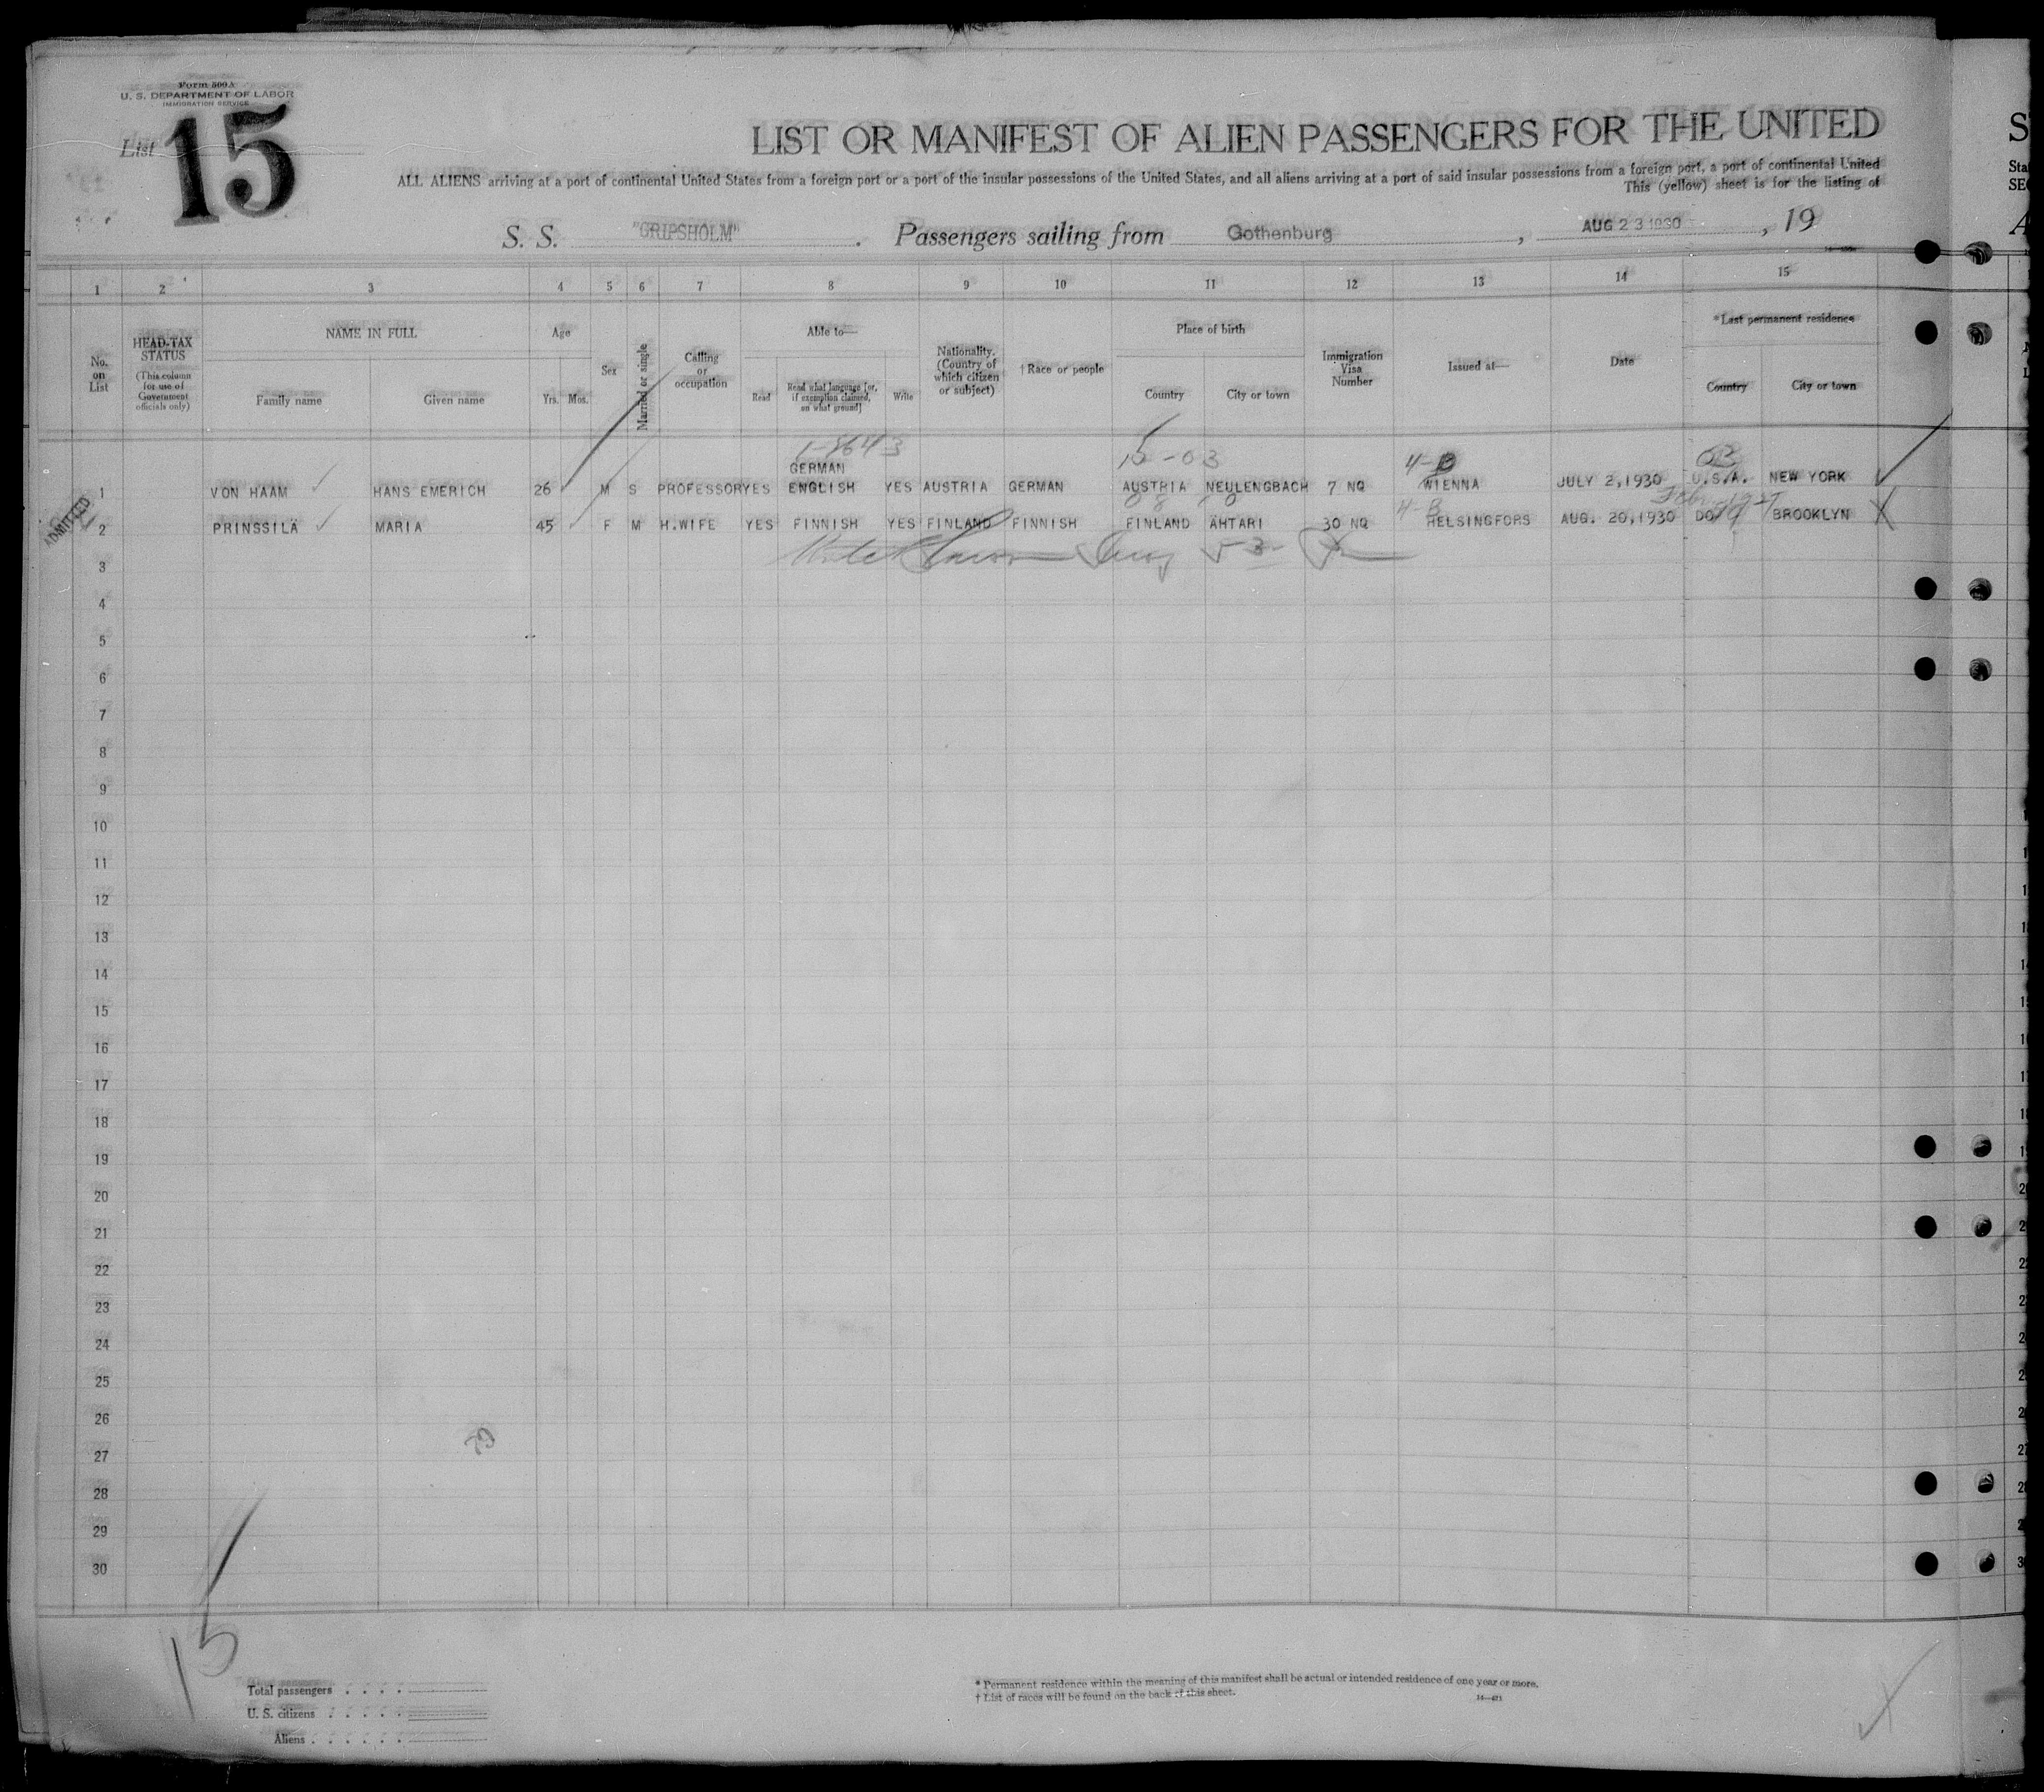 Form 500 A
U. S. DEPARTMENT OF LABOR
IMMIGRATION SERVICE
List 15
LIST OR MANIFEST OF ALIEN PASSENGERS FOR THE UNITED
ALL ALIENS arriving at a port of continental United States from a foreign port or a port of the insular possessions of the United States, and all aliens arriving at a port of said insular possessions from a foreign port, a port of continental United
This (yellow) sheet is for the listing of
S. S. "GRIPSHOLM" . Passengers sailing from Gothenburg , AUG 23 1930 , 19
1 2 3 4 5 6 7 8 9 10 11 12 13 14 15
No. on List
HEAD-TAX STATUS (This column for use of Government officials only)
NAME IN FULL
Family name
Given name
Age
Yrs. Mos.
Sex
Married or single
Calling or occupation
Able to—
Read
Read what language [or, if exemption claimed, on what ground]
Write
Nationality. (Country of which citizen or subject)
†Race or people
Place of birth
Country
City or town
Immigration Visa Number
Issued at—
Date
*Last permanent residence
Country
City or town
1-8643
GERMAN
4-B
1 VON HAAM HANS EMERICH 26 M S PROFESSOR YES ENGLISH YES AUSTRIA GERMAN AUSTRIA NEULENGBACH 7 NQ WIENNA JULY 2,1930 U.S.A. NEW YORK
4-B
ADMITTED
2 PRINSSILÄ MARIA 45 F M H.WIFE YES FINNISH YES FINLAND FINNISH FINLAND ÄHTARI 30 NQ HELSINGFORS AUG. 20,1930 DO BROOKLYN
3
4
5
6
7
8
9
10
11
12
13
14
15
16
17
18
19
20
21
22
23
24
25
26
27
28
29
30
15
Total passengers . . . .
U. S. citizens . . . . .
Aliens . . . . . .
* Permanent residence within the meaning of this manifest shall be actual or intended residence of one year or more.
† List of races will be found on the back of this sheet.